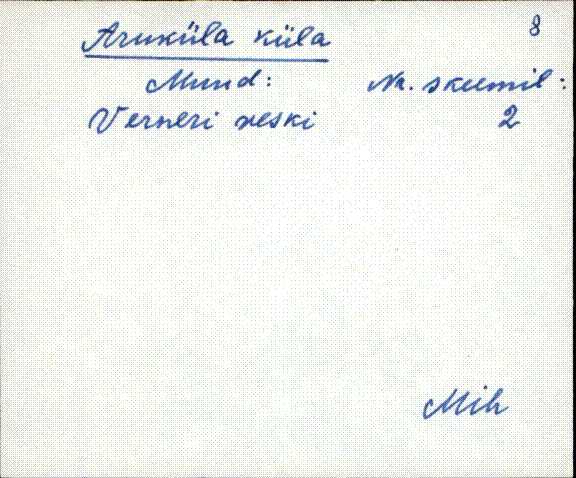 8
Aruküla küla
Muud: Nr. skeemil:
Verneri veski 2
Mih